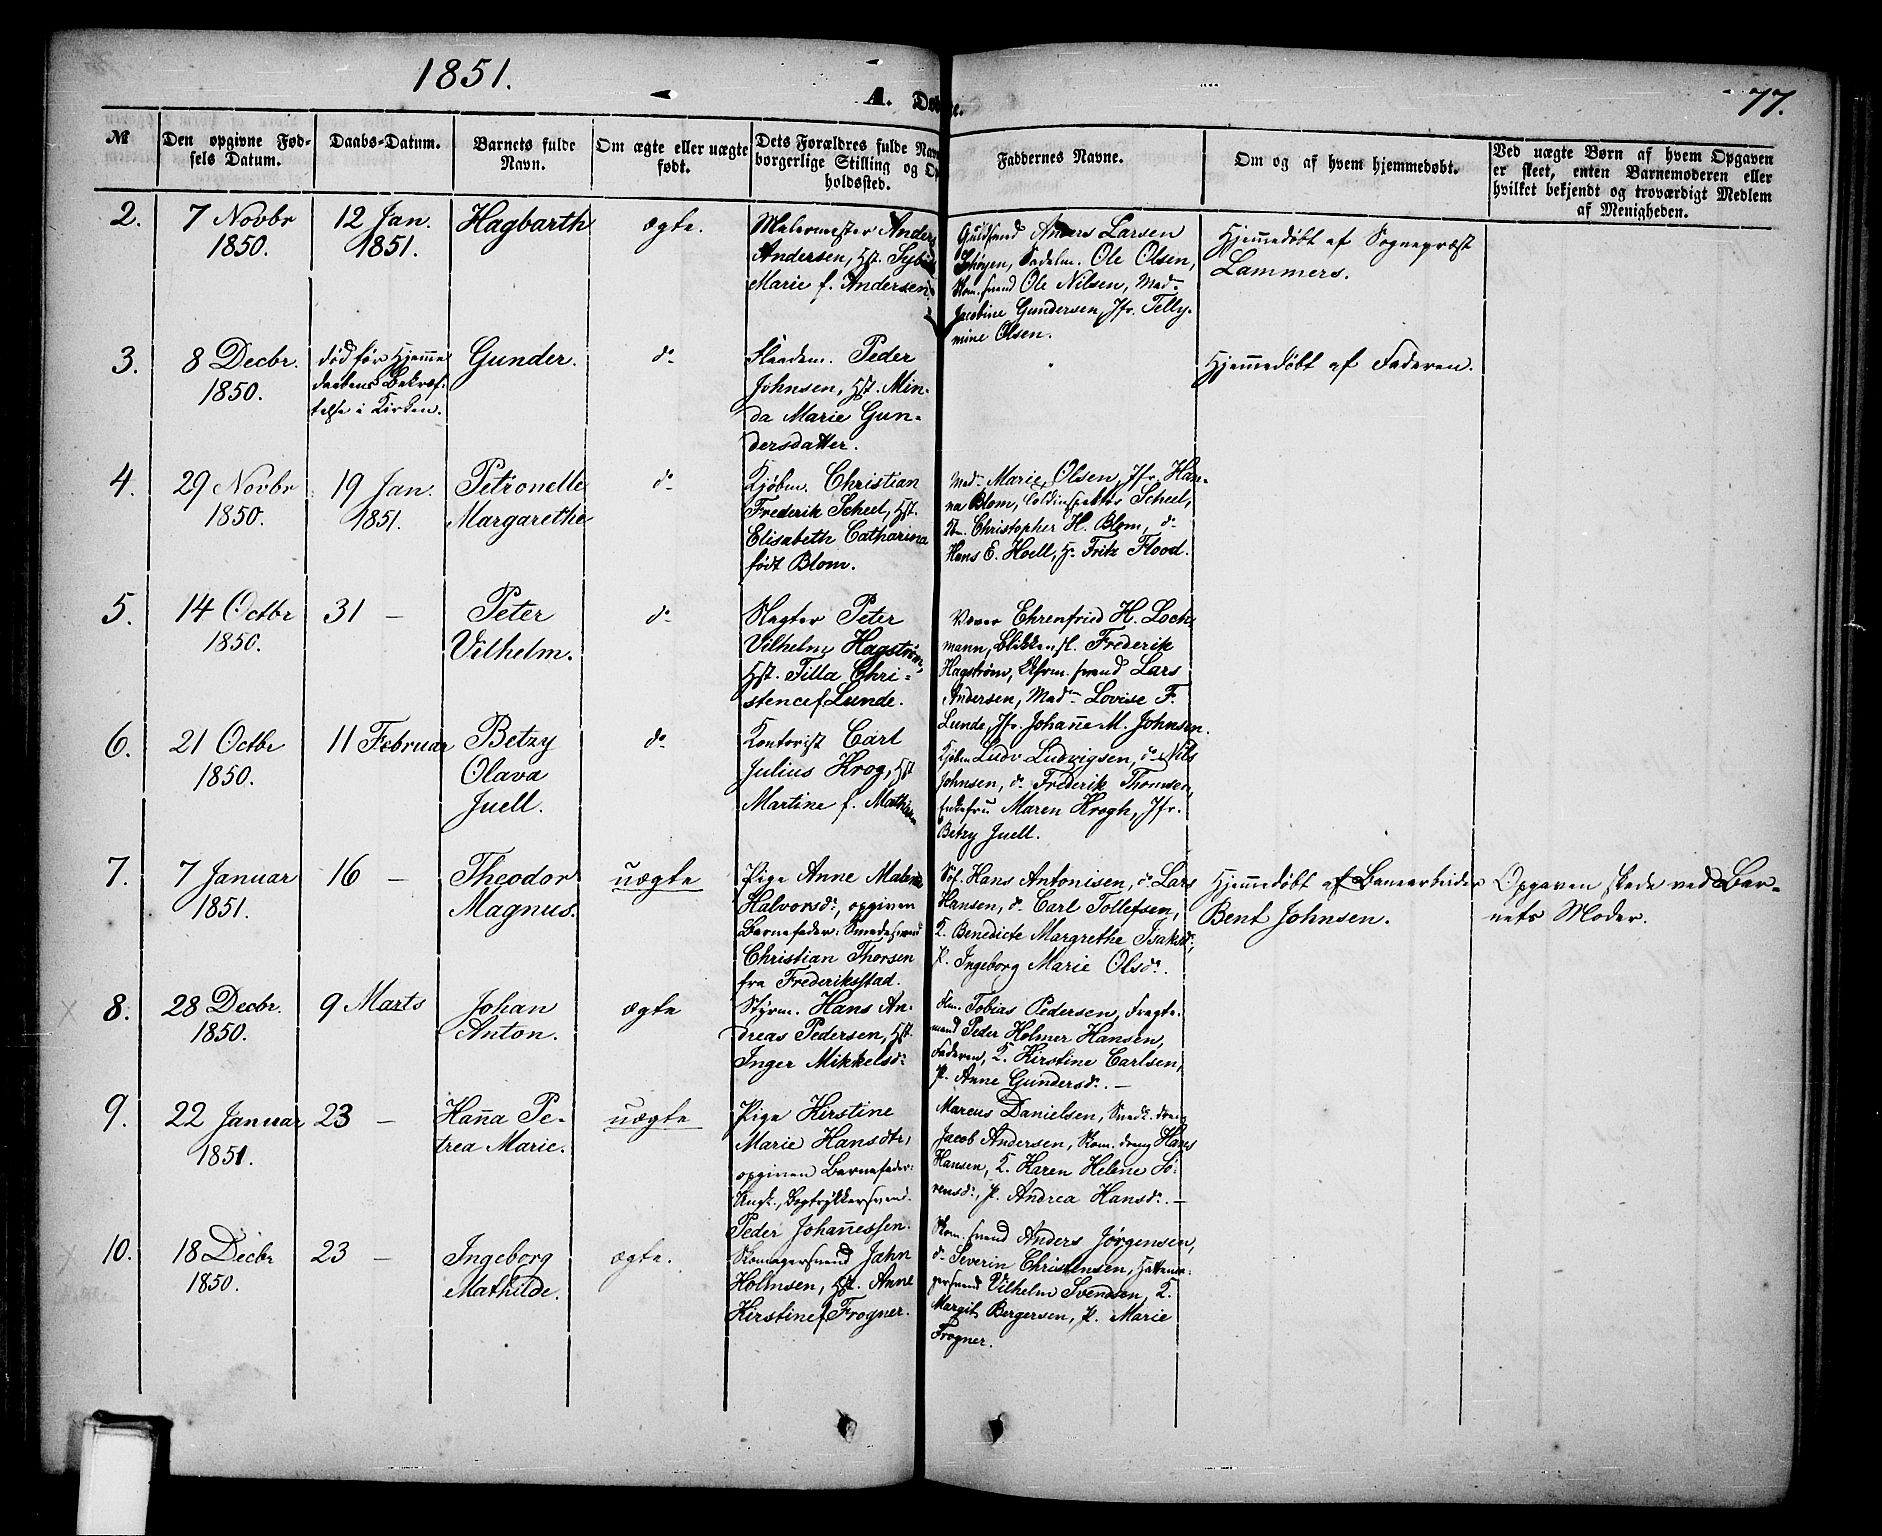 1851.
A. Døbte.
77.
№
Den opgivne Fød-
sels Datum.
Daabs-Datum.
Barnets fulde
Navn.
Om ægte eller uægte
født.
Dets Forældres fulde Navn
borgerlige Stilling og Op
holdssted.
Faddernes Navne.
Om og af hvem hjemmedøbt.
Ved uægte Børn af hvem Opgaven
er skeet, enten Barnemoderen eller
hvilket bekjendt og troværdigt Medlem
af Menigheden.
2.
7 Novbr
1850.
12 Jan.
1851.
Hagbarth
ægte.
Malermester Anders
Andersen, Hst.
Marie f. Andersen.
Guldsvend Anders Larsen
Sadelm. Ole Olsen,
Skom.svend Ole Nilsen, Mad.
Jacobine Gundersen, Jfr. Telly-
mine Olsen.
Hjemmedøbt af Sognepræst
Lammers.
3.
8 Decbr.
1850.
død før Hjemme
daabens Bekræf-
telse i Kirken.
Gunder.
do
Peder
Johnsen, Hst. Min-
da Marie Gun-
dersdatter.
Hjem̄edøbt af Faderen.
4.
29 Novbr
1850.
19 Jan.
1851.
Petronelle
Margarethe
do
Kjøbm. Christian
Frederik Scheel, Hst.
Elisabeth Catharina
født Blom.
Mad. Marie Olsen, Jfr. Han-
na Blom, Toldinspektør Scheel,
Christopher H. Blom, do
Hans E. Hoell, H. Fritz Flood.
5.
14 Octbr
1850.
31 —
Peter
Vilhelm.
do
Slagter Peter
Vilhelm Hagstrøm,
Hst. Tilla Chri-
stence f. Lunde.
Væver Ehrenfried H. Loch-
mann, Blikkensl. Frederik
Hagstrøm, svend Lars
Andersen, Mad. Lovise F.
Lunde, Jfr. Johan̄e M. Johnsen.
6.
21 Octbr
1850.
11 Februar
Betzy
Olava
Juell.
do
Kontorist Carl
Julius Krog, Hst
Martine f. Mathisen
Kjøbm Ludv Ludvigsen, do Nils
Johnsen, do Frederik Thomsen,
Enkefru Maren Krogh, Jfr.
Betzy Juell.
7.
7 Januar
1851.
16 —
Theodor
Magnus.
uægte
Pige Anne Malene
Halvorsd., opgiven
Barnefader: Smedesvend
Christian Thorsen
fra Frederiksstad.
Søf. Hans Antonisen, do Lars
Hansen, do Carl Tollefsen,
K. Benedicte Margrethe Isaksd.,
P. Ingeborg Marie Olsd.
Hjem̄edøbt af Banearbeider
Bent Johnsen.
Opgaven skede ved Bar-
nets Moder.
8.
28 Decbr.
1850.
9 Marts
Johan
Anton.
ægte
Styrm. Hans An-
dreas Pedersen, Hst.
Inger Mikkelsd.
Tobias Pedersen, Fragte-
mand Peder Holmer Hansen,
Faderen, K. Kirstine Carlsen,
P. Anne Gundersd. —
9.
22 Januar
1851.
23 —
Han̄a Pe-
trea Marie.
uægte
Pige Kirstine
Marie Hansdtr,
opgiven Barnefader:
Ungk., Bogtrykkersvend
Peder Johan̄essen.
Marcus Danielsen, Smed.dreng
Jacob Andersen, Skom.dreng Hans
Hansen, K. Karen Helene Sø-
rensd., P. Andrea Hansd. —
10.
18 Decbr
1850.
23 —
Ingeborg
Mathilde.
ægte.
Skomagersvend Jahn
Holmsen, Hst. Anne
Kirstine f. Frogner.
Skom.svend Anders Jørgensen,
do Severin Christensen, Hattema-
gersvend Vilhelm Svendsen, K.
Margit Bergersen, P. Marie
Frogner.